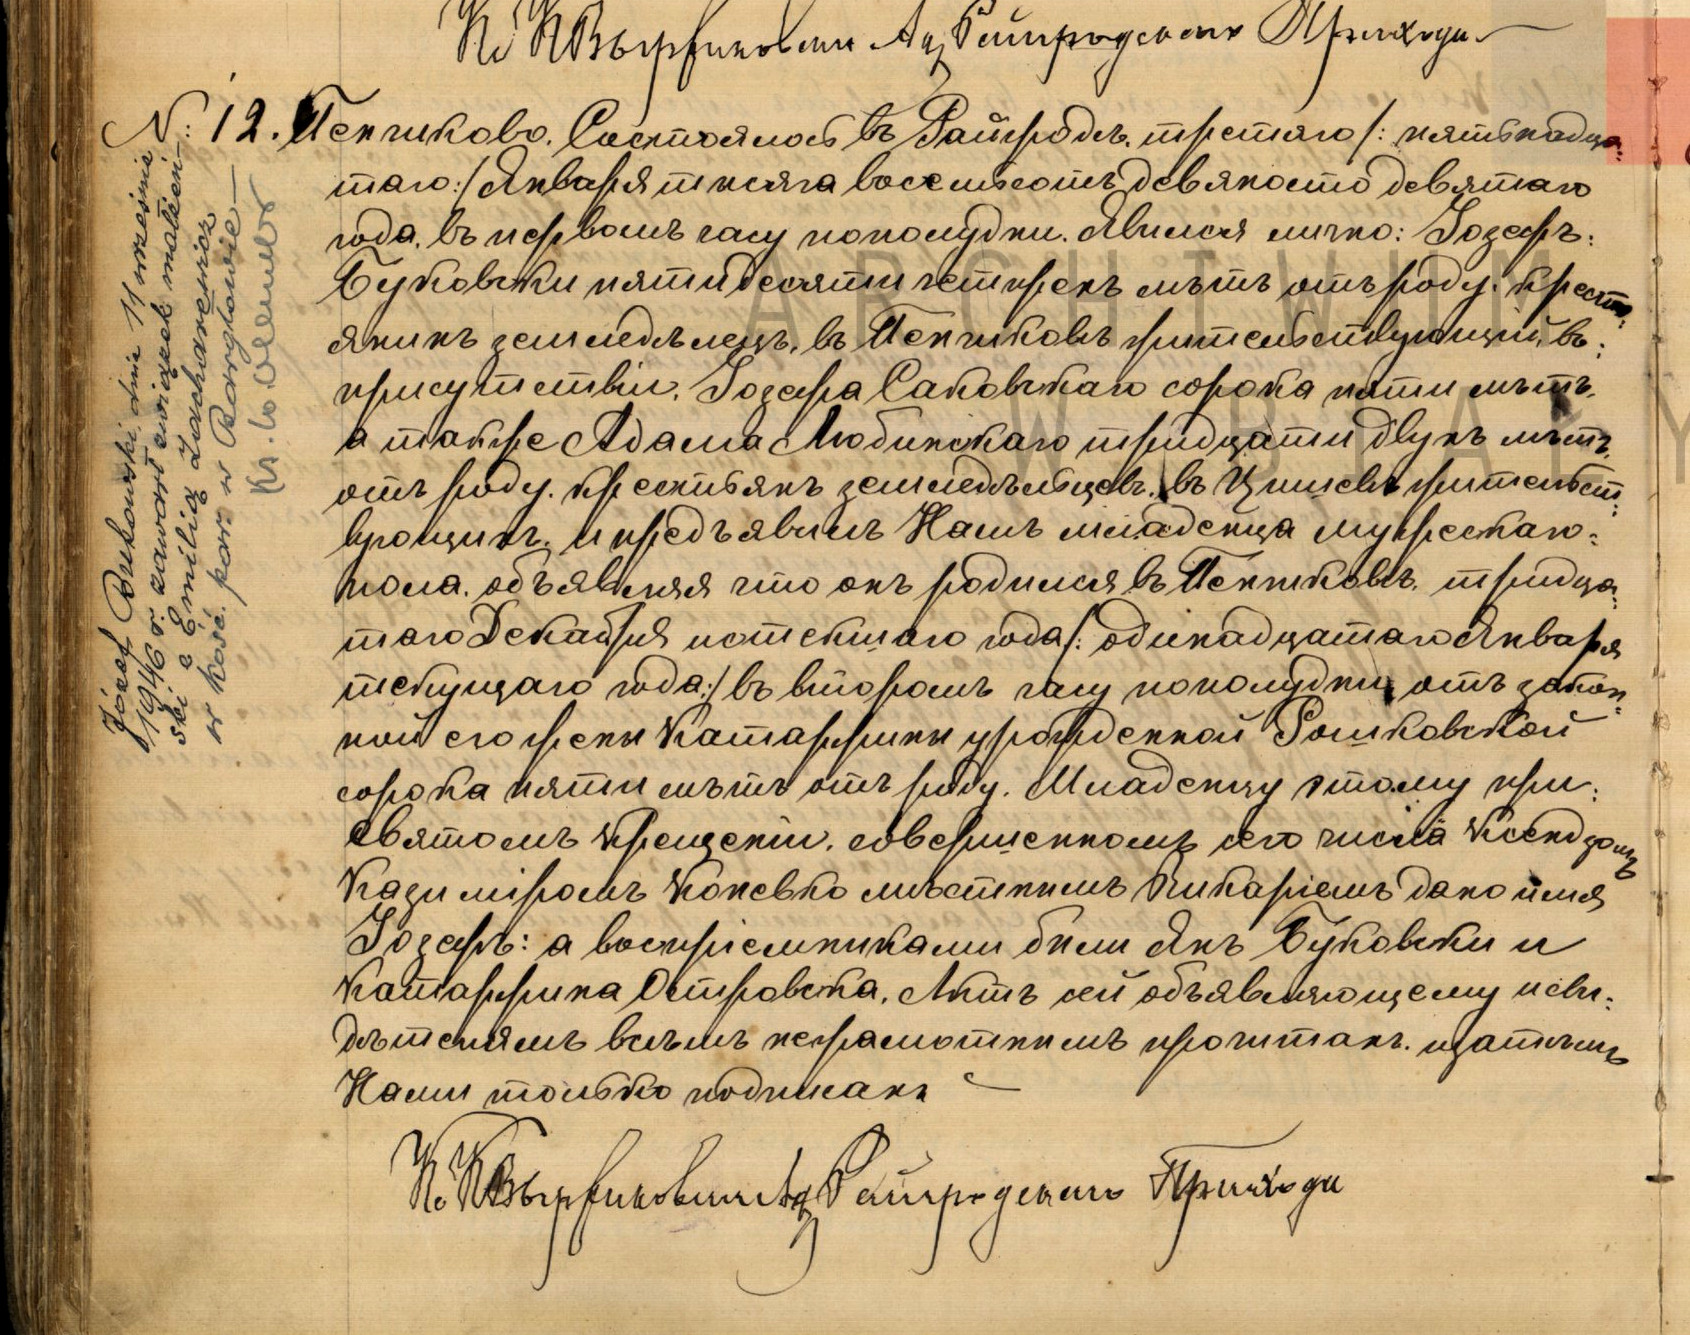 Кс К Выржиковски Ад. Райгродскаго Прихода
N: 12. Пенчиково. Состоялось въ Райгродѣ, третяго /: пятьнадца=
таго :/ Января тысяча восемьсотъ девяносто девятаго
года, въ первомъ часу пополудни. Явился лично: Іозефъ=
Буковски пятидесяти четырехъ лѣтъ отъ роду, кресть=
янинъ земледѣлецъ, въ Пенчиковѣ жительствующій, въ=
присутствіи, Іозефа Саковскаго сорока пяти лѣтъ,
а также Адама Любинскаго тридцати двухъ лѣтъ,
отъ роду, крестьянъ земледѣльцевъ, въ жительст=
вующихъ, и предъявилъ Намъ младенца мужескаго=
пола, объявляя что онъ родился въ Пенчиковѣ, тридца=
таго Декабря истекшаго года /: одинадцатаго Января
текущаго года :/ въ второмъ часу пополудни, отъ закон=
ной его жены Катаржины урожденной Рошковской
сорока пяти лѣтъ отъ роду. Младенцу этому при=
святомъ крещеніи, совершенномъ сего числа Ксендзомъ
Казиміромъ Коневко мѣстнымъ Викаріемъ дано имя
Іозефъ: а воспріемниками были Янъ Буковски и
Катаржина Островска, Актъ сей объявляющему и сви=
дѣтелямъ всѣмъ неграмотнымъ прочитанъ, и затѣмъ
Нами только подписанъ
Кс К Выржиковски Ад. Райгродскаго Прихода
Józef Bukowski, dnia 11 września
1946 r. zawarł związek małżeń-
ski z Emilią Zacharewicz
w kość. par. w Bargłowie
Ks.
ARCHIWUM
W BIAŁY